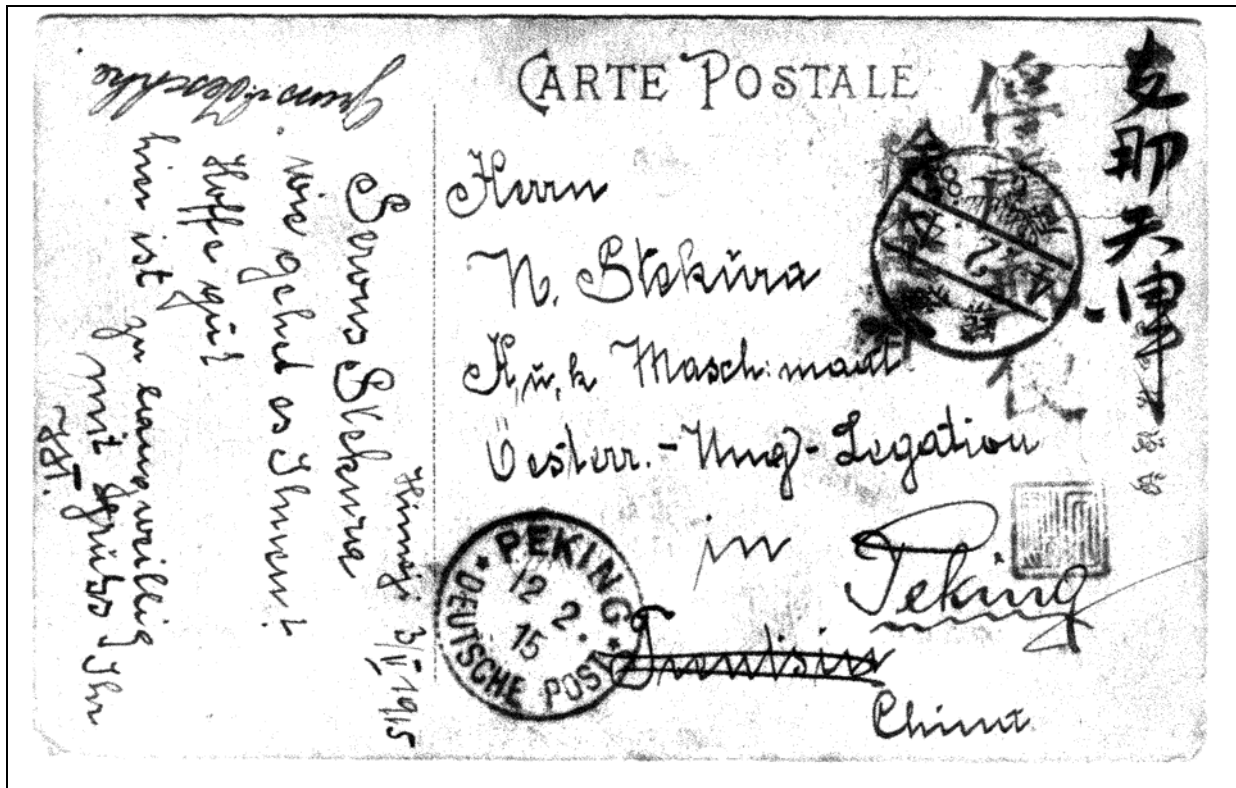 CARTE POSTALE
支那天津
Herrn
N. Stekura
K.u.k Masch:maat
Oesterr.-Ung-Legation
in Peking
Tientsin
China
PEKING
12 2.
15
DEUTSCHE POST
Himeji 3/II 1915
Servus Stekura
wie gehet es Ihnen?
Hoffe gut
hier ist zu langweillig
mit Ihr
Gruss